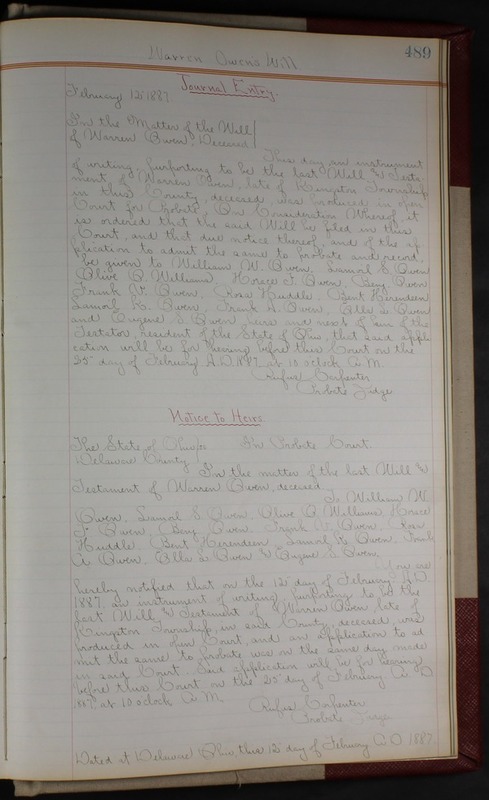 Warren Owens Will
489
Journal Entry.
February 12, 1887.
In the Matter of the Will
of Warren Owen, Deceased
This day an instrument
of writing, purporting to be the last Will & Testa-
ment of Warren Owen, late of Kingston Township,
in this County, deceased, was produced in open
Court for Probate. On Consideration Whereof, it
is ordered that the said Will be filed in this
Court, and that due notice thereof, and of the ap-
plication to admit the same to probate and record,
be given to William W. Owen, Samol S. Owen
Olive A. Williams, Horace F. Owen, Benj. Owen
Frank V. Owen, Rosa Huddle, Bent Herendeen
Samol K. Owen, Frank A. Owen, Ella L. Owen
and Eugene S. Owen, heirs and next of kin of the
Testator, resident of the State of Ohio, that said appli
cation will be for hearing before this Court on the
25" day of February A.D. 1887, at 10 oclock A.M.
Rufus Carpenter
Probate Judge
Notice to Heirs
The State of Ohio, In Probate Court.
Delaware County
In the matter of the last Will &
Testament of Warren Owen, deceased
To William W.
Owen, Samol S. Owen, Olive A. Williams, Horace
F. Owen, Benj. Owen, Frank V. Owen, Rosa
Huddle, Bent Herendeen, Samol K. Owen, Frank
A. Owen, Ella L. Owen & Eugene S. Owen,
You are
hereby notified that on the 12" day of February A.D.
1887, an instrument of writing, purporting to be the
last Will & Testament of Warren Owen, late of
Kingston Township, in said County, deceased, was
produced in open Court, and an application to ad
mit the same to probate, was on the same day made
in said Court. Said application will be for hearing
before this Court on the 25" day of February A. D.
1887, at 10 oclock A.M.
Rufus Carpenter
Probate Judge
Dated at Delaware Ohio, this 12" day of February A.D. 1887.